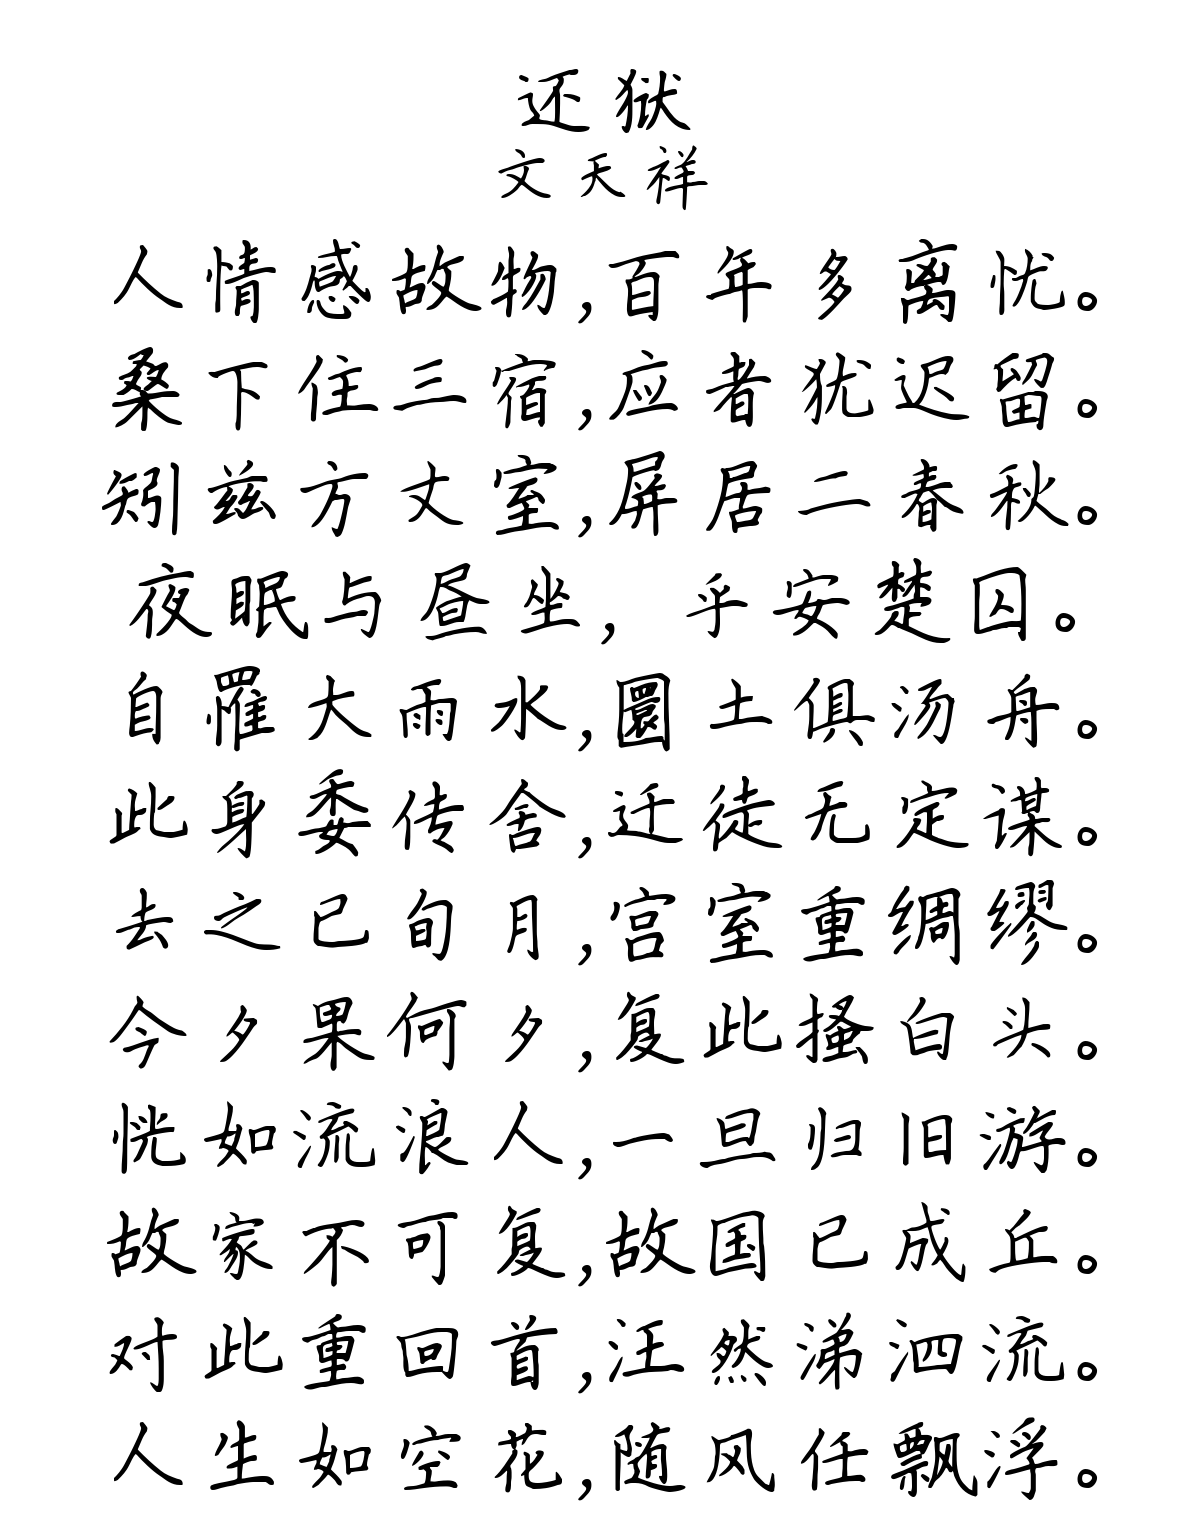 还狱
文天祥
人情感故物,百年多离忧。
桑下住三宿,应者犹迟留。
矧兹方丈室,屏居二春秋。
夜眠与昼坐,乎安楚囚。
自罹大雨水,圜土俱汤舟。
此身委传舍,迁徒无定谋。
去之已旬月,宫室重绸缪。
今夕果何夕,复此搔白头。
恍如流浪人,一旦归旧游。
故家不可复,故国已成丘。
对此重回首,汪然涕泗流。
人生如空花,随风任飘浮。